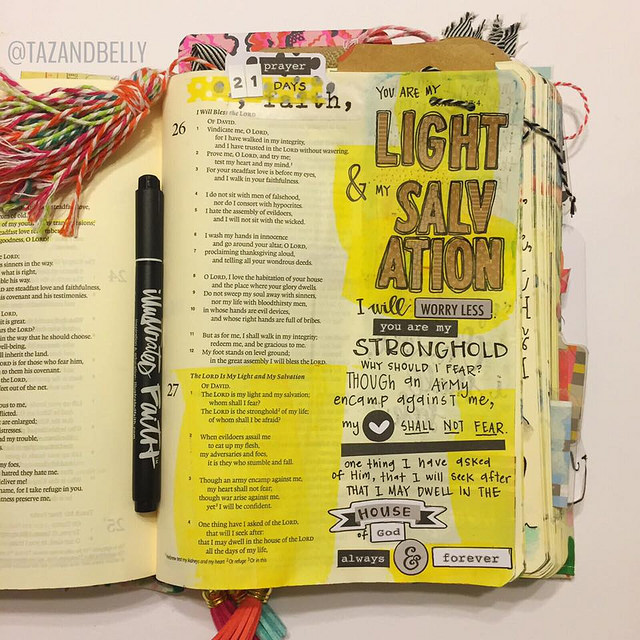 @TAZANDBELLY
prayer
21
DAYS
faith,
I Will Bless the LORD
26
OF DAVID.
1 Vindicate me, O LORD,
for I have walked in my integrity,
and I have trusted in the LORD without wavering.
2 Prove me, O LORD, and try me;
test my heart and my mind.¹
3 For your steadfast love is before my eyes,
and I walk in your faithfulness.
4 I do not sit with men of falsehood,
nor do I consort with hypocrites.
5 I hate the assembly of evildoers,
and I will not sit with the wicked.
6 I wash my hands in innocence
and go around your altar, O LORD,
7 proclaiming thanksgiving aloud,
and telling all your wondrous deeds.
8 O LORD, I love the habitation of your house
and the place where your glory dwells.
9 Do not sweep my soul away with sinners,
nor my life with bloodthirsty men,
10 in whose hands are evil devices,
and whose right hands are full of bribes.
11 But as for me, I shall walk in my integrity;
redeem me, and be gracious to me.
12 My foot stands on level ground;
in the great assembly I will bless the LORD.
The LORD Is My Light and My Salvation
27
OF DAVID.
1 The LORD is my light and my salvation;
whom shall I fear?
The LORD is the stronghold² of my life;
of whom shall I be afraid?
2 When evildoers assail me
to eat up my flesh,
my adversaries and foes,
it is they who stumble and fall.
3 Though an army encamp against me,
my heart shall not fear;
though war arise against me,
yet³ I will be confident.
4 One thing have I asked of the LORD,
that will I seek after:
that I may dwell in the house of the LORD
all the days of my life,
my kidneys and my heart ²Or refuge ³Or in this
YOU ARE MY
LIGHT
& MY
SALV
ATION
I will WORRY LESS
you are my
STRONGHOLD
WHY SHOULD I FEAR?
THOUGH an ARMY
encamp against me,
my SHALL NOT FEAR.
one thing I have asked
of Him, that I will seek after
THAT I MAY DWELL IN THE
HOUSE
of God
always & forever
illustrated Faith
24
25
in the way.
what is right,
his way.
are steadfast love and faithfulness,
his covenant and his testimonies.
it is great.
in the way that he should choose.
well-being,
inherit the land.
is for those who fear him,
to them his covenant.
out of the net.
are enlarged;
and my trouble,
my foes,
hatred they hate me.
deliver me!
for I take refuge in you.
preserve me,